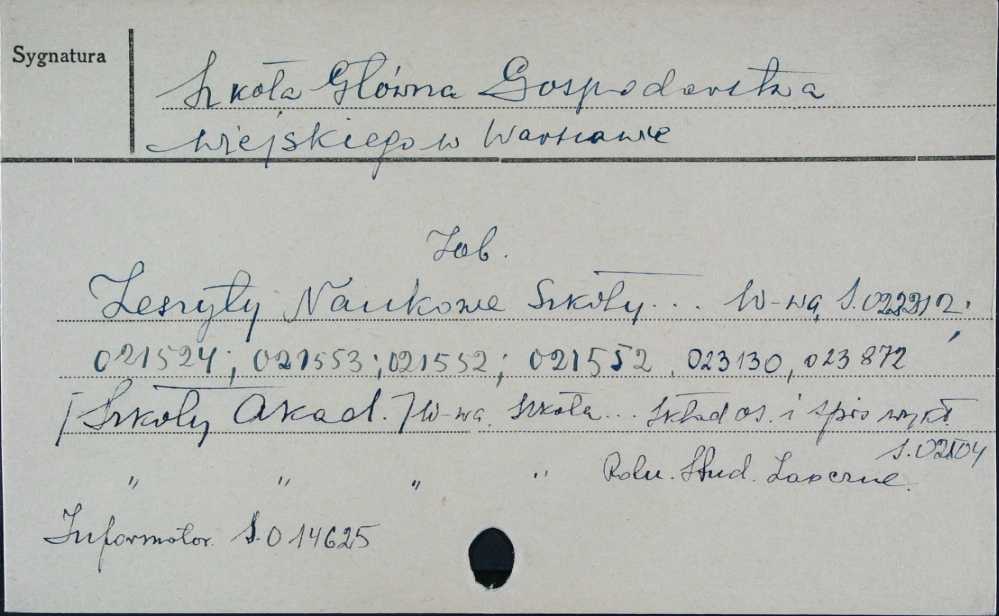 Sygnatura
Szkoła Główna Gospodarstwa
Wiejskiego w Warszawie
Zob.
Zeszyty Naukowe Szkoły... W-wa, S.022212.
021524; 021553; 021552; 021552, 023130, 023872
[Szkoły Akad.] W-wa. Szkoła... Skład os. i spis wykł.
S.02504
" " " " Roln. Stud. Zaoczne.
Informator. S.014625